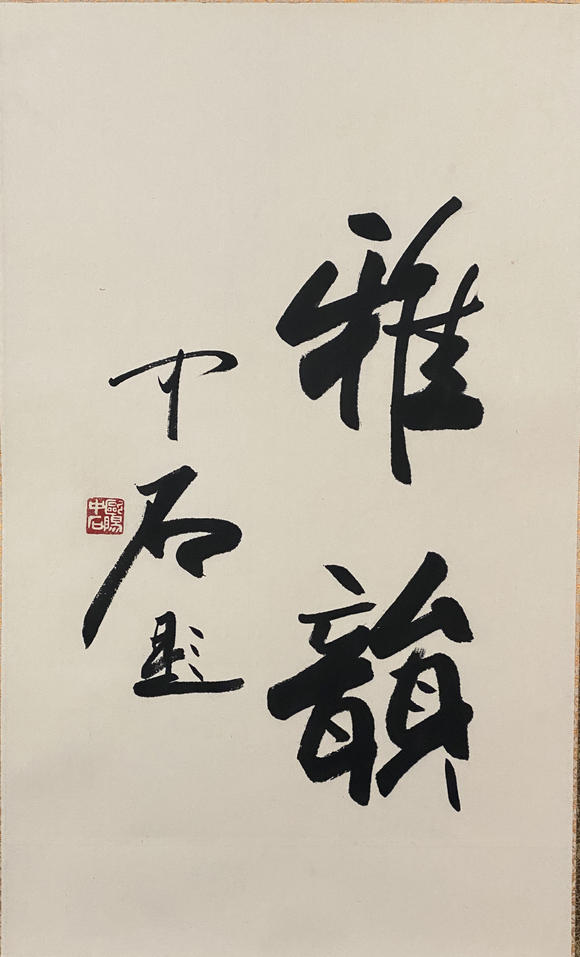 雅韻
中石題
歐陽中石